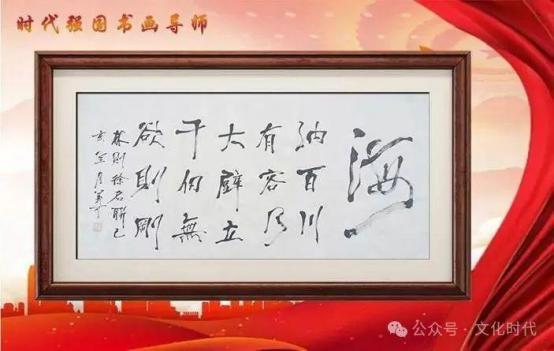 时代强国书画导师
海
纳百川
有容乃
大壁立
千仞無
欲則剛
林則徐名聯己
亥
公众号·文化时代